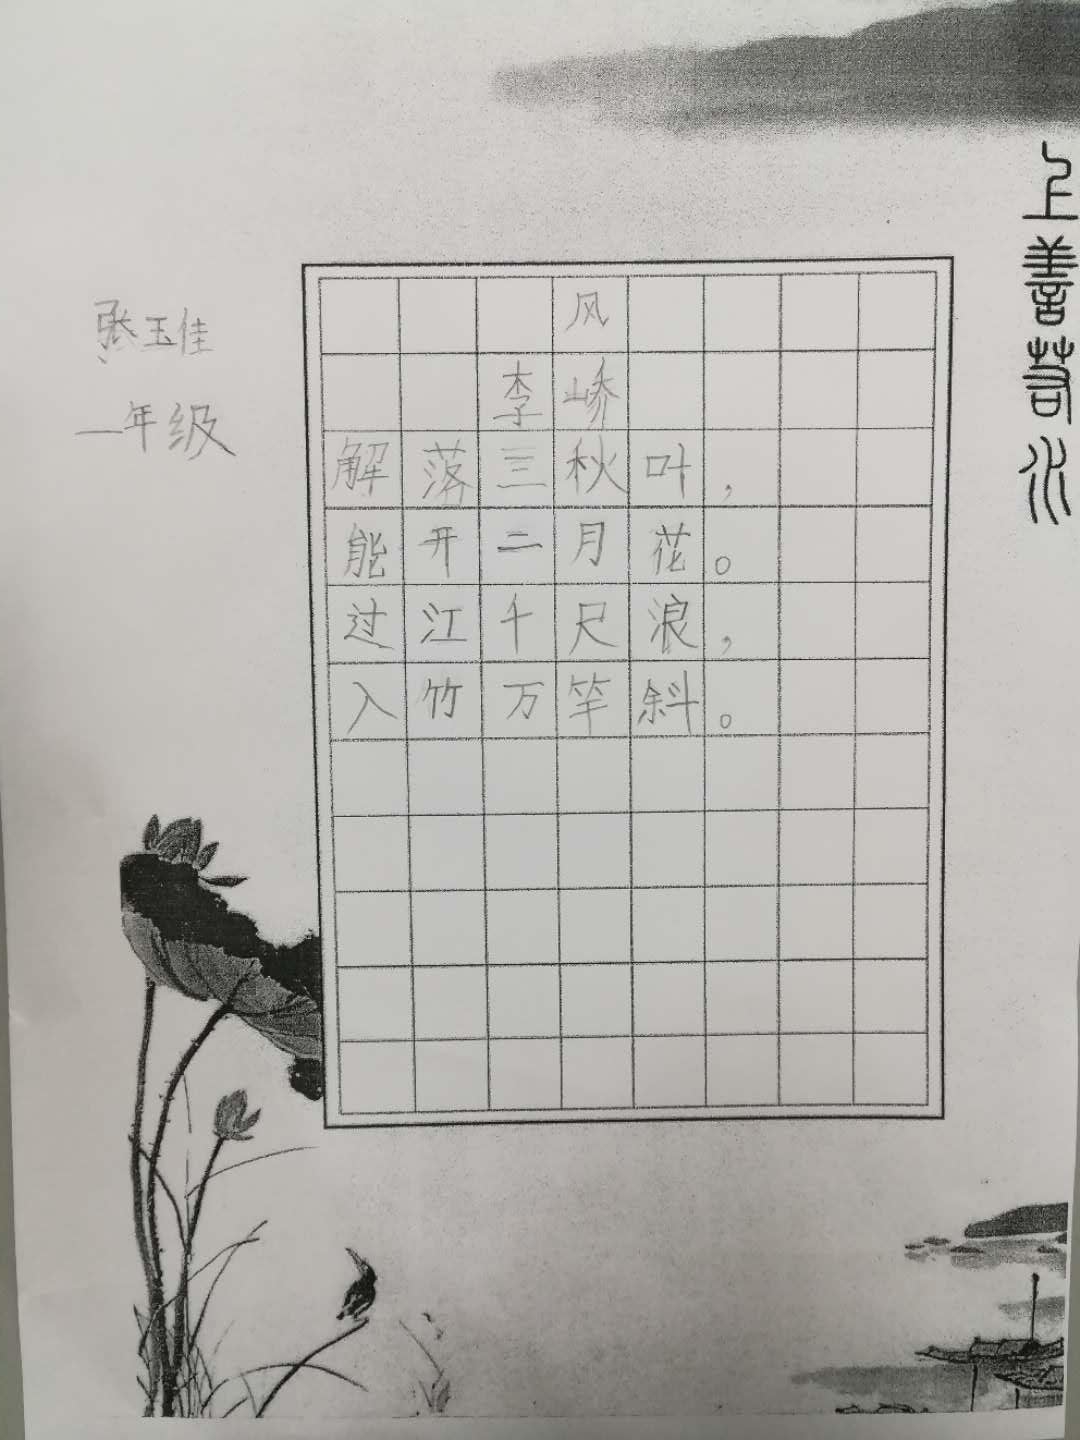 上善若水
张玉佳
一年级
风
李峤
解落三秋叶，
能开二月花。
过江千尺浪，
入竹万竿斜。